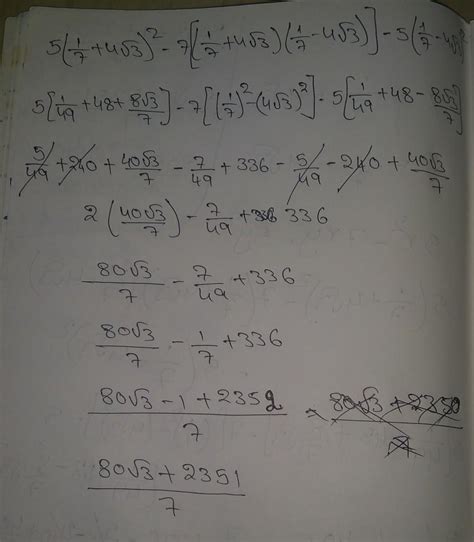 5(1/7 + 4√3)² - 7[(1/7 + 4√3)(1/7 - 4√3)] - 5(1/7 - 4√3)
5[1/49 + 48 + 8√3/7] - 7[(1/7)² - (4√3)²] - 5[1/49 + 48 - 8√3/7]
5/49 + 240 + 40√3/7 - 7/49 + 336 - 5/49 - 240 + 40√3/7
2(40√3/7) - 7/49 + 336
80√3/7 - 7/49 + 336
80√3/7 - 1/7 + 336
80√3 - 1 + 2352/7 = 80√3 + 2350/7
80√3 + 2351/7